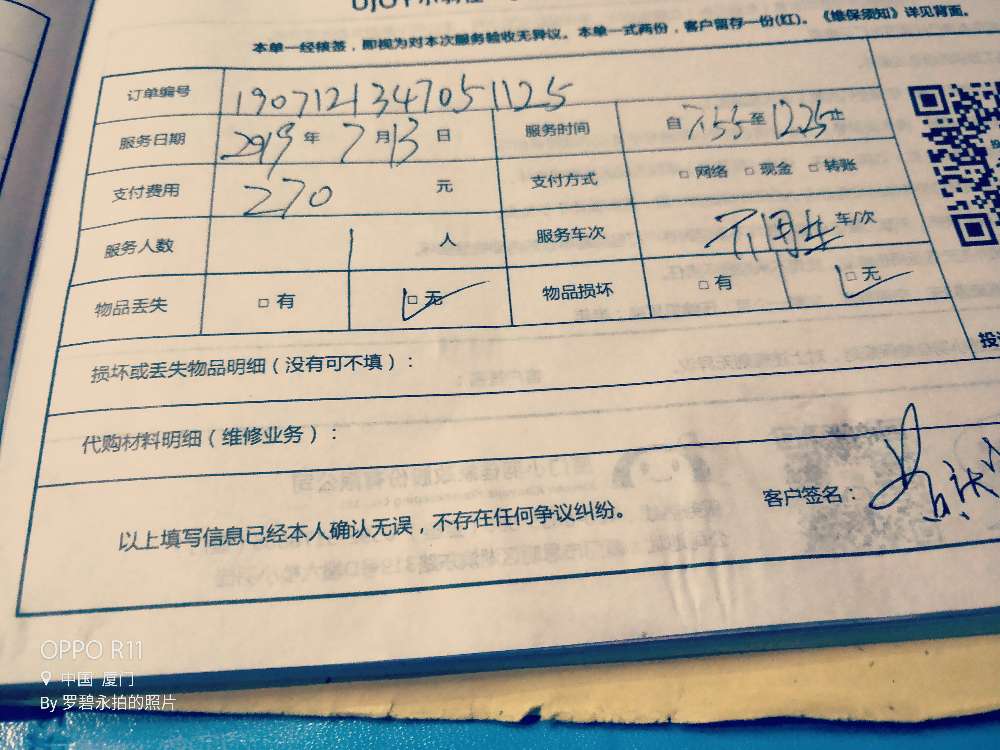 UJOY小羽佳
本单一经核签，即视为对本次服务验收无异议。本单一式两份，客户留存一份(红)。《维保须知》详见背面。
订单编号 1907121347051125
服务日期 2019 年 7 月 13 日 服务时间 自 755 至 1225 止
支付费用 270 元 支付方式 □ 网络 □ 现金 □ 转账
服务人数 1 人 服务车次 不用车 车/次
物品丢失 □ 有 □ 无 物品损坏 □ 有 □ 无
损坏或丢失物品明细（没有可不填）：
代购材料明细（维修业务）：
以上填写信息已经本人确认无误，不存在任何争议纠纷。 客户签名：
OPPO R11
中国·厦门
By 罗碧永拍的照片